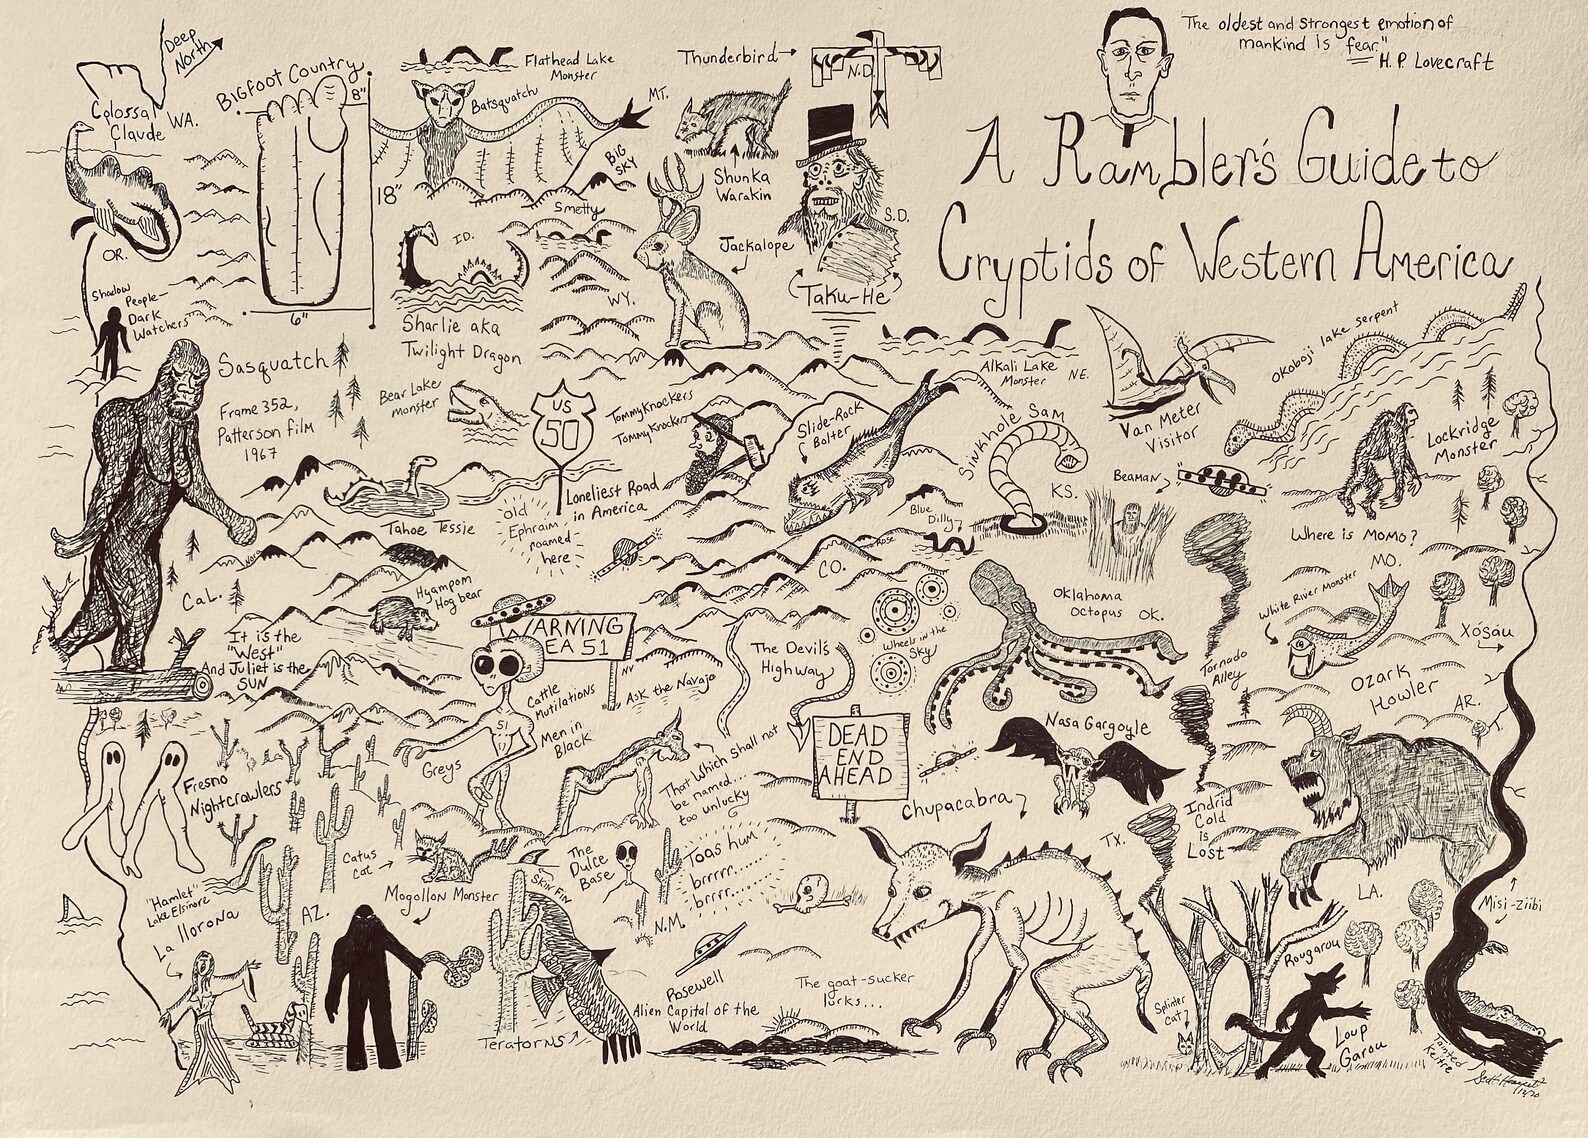 Deep
North
Colossal
Claude
WA.
BIGFOOT Country
8"
18"
6"
Flathead Lake
Monster
Batsquatch
MT.
BIG
SKY
Thunderbird
N.D.
Shunka
Warakin
S.D.
Taku-He
Jackalope
WY.
Smetty
I.D.
Sharlie aka
Twilight Dragon
The oldest and strongest emotion of
mankind is fear"
H.P. Lovecraft
A Rambler's Guide to
Cryptids of Western America
OR.
Shadow
People-
Dark
Watchers
Sasquatch
Frame 352,
Patterson film
1967
Bear Lake
monster
US
50
Loneliest Road
in America
TommyKnockers
TommyKnockers
Slide-Rock
Bolter
Alkali Lake
Monster
NE.
Sinkhole Sam
KS.
Van Meter
Visitor
Okoboji lake serpent
Lockridge
Monster
Beaman
Where is MOMO?
MO.
Tahoe Tessie
old
Ephraim
roamed
here
Blue
Dilly
CO.
CaL.
Hyampom
Hog bear
It is the
"West"
And Juliet is the
SUN
WARNING
EA 51
NV
51
Cattle
Mutilations
Men in
Black
Greys
Ask the Navajo
The Devil's
Highway
Wheels in the
Sky
Oklahoma
Octopus
OK.
White River Monster
Xósáu
Tornado
Alley
Ozark
Howler
AR.
DEAD
END
AHEAD
Nasa Gargoyle
That which shall not
be named...
too unlucky
Fresno
Nightcrawlers
Catus
Cat
Mogollon Monster
"Hamlet"
Lake Elsinore
La llorona
AZ.
Skin Fin
The
Dulce
Base
Taos hum
brrrr......
brrr........
N.M.
Chupacabra
TX.
Indrid
Cold
is
Lost
LA.
Misi-ziibi
Rougarou
Splinter
Cat
Loup
Garou
Tainted
Keitre
Teratorns
Roswell
Alien Capital of the
World
The goat-sucker
lurks...
12/20